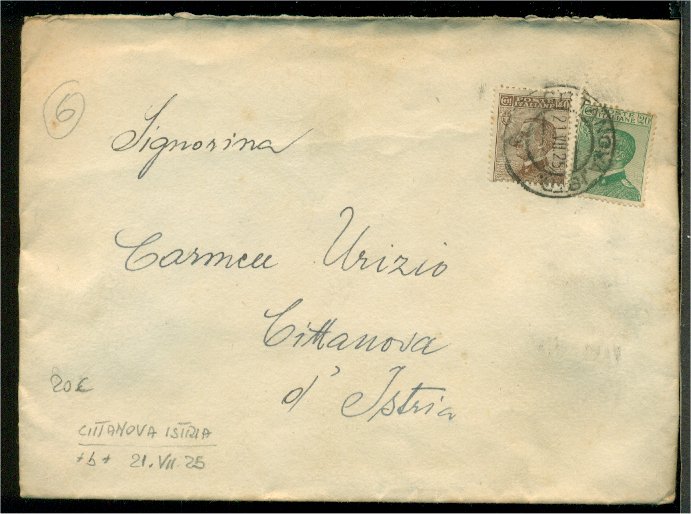 6
Signorina
Carmen Urizio
Cittanova
d' Istria
20€
CITTANOVA ISTRIA
*b* 21.VII.25
POSTE 20
ITALIANE